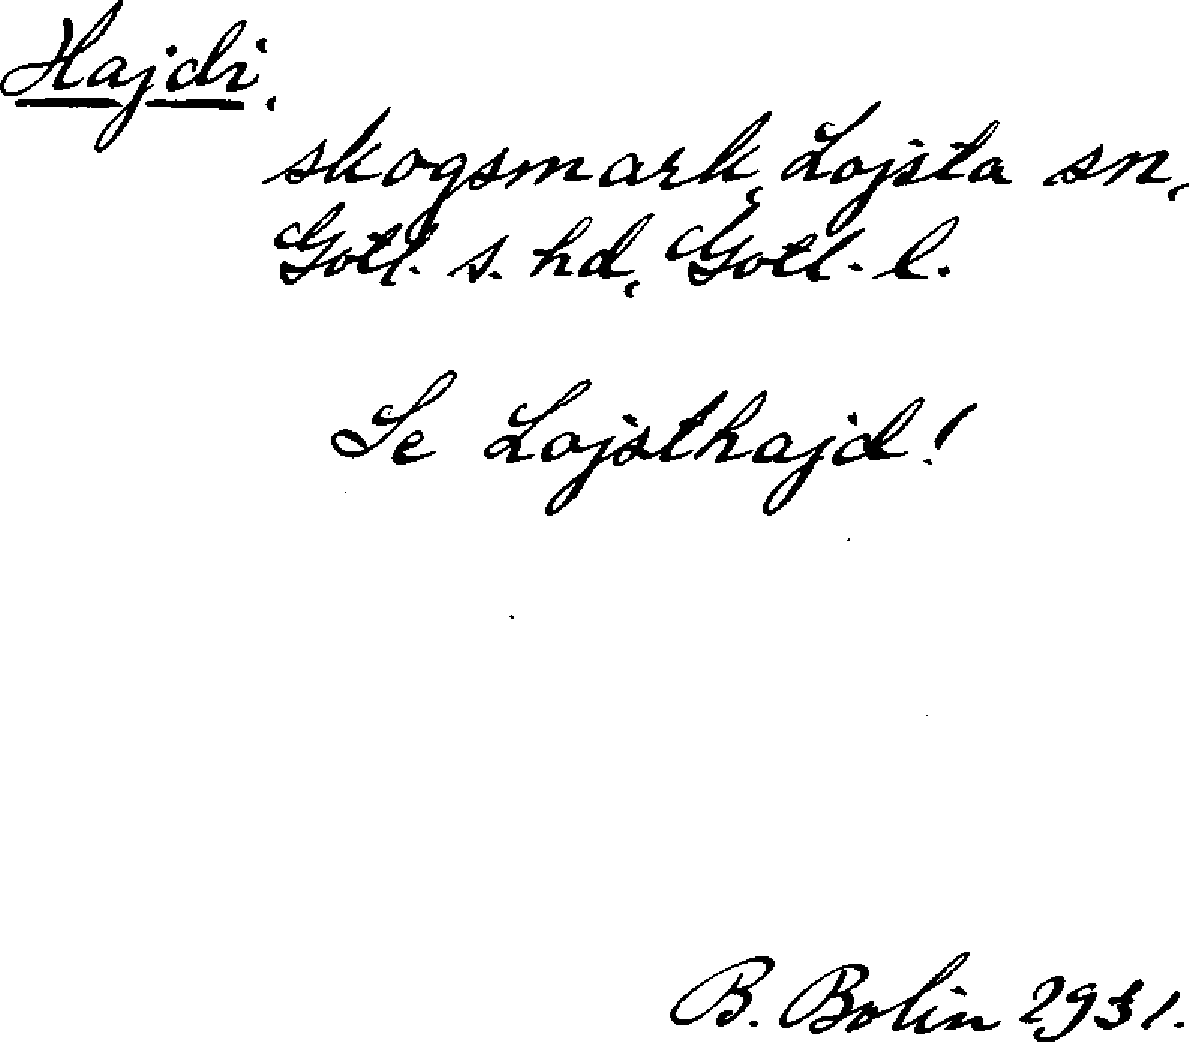 Hajdi,
skogsmark, Lojsta sn,
Gotl. s. hd, Gotl. l.
Se Lojsthajd!
B. Bolin 2931.